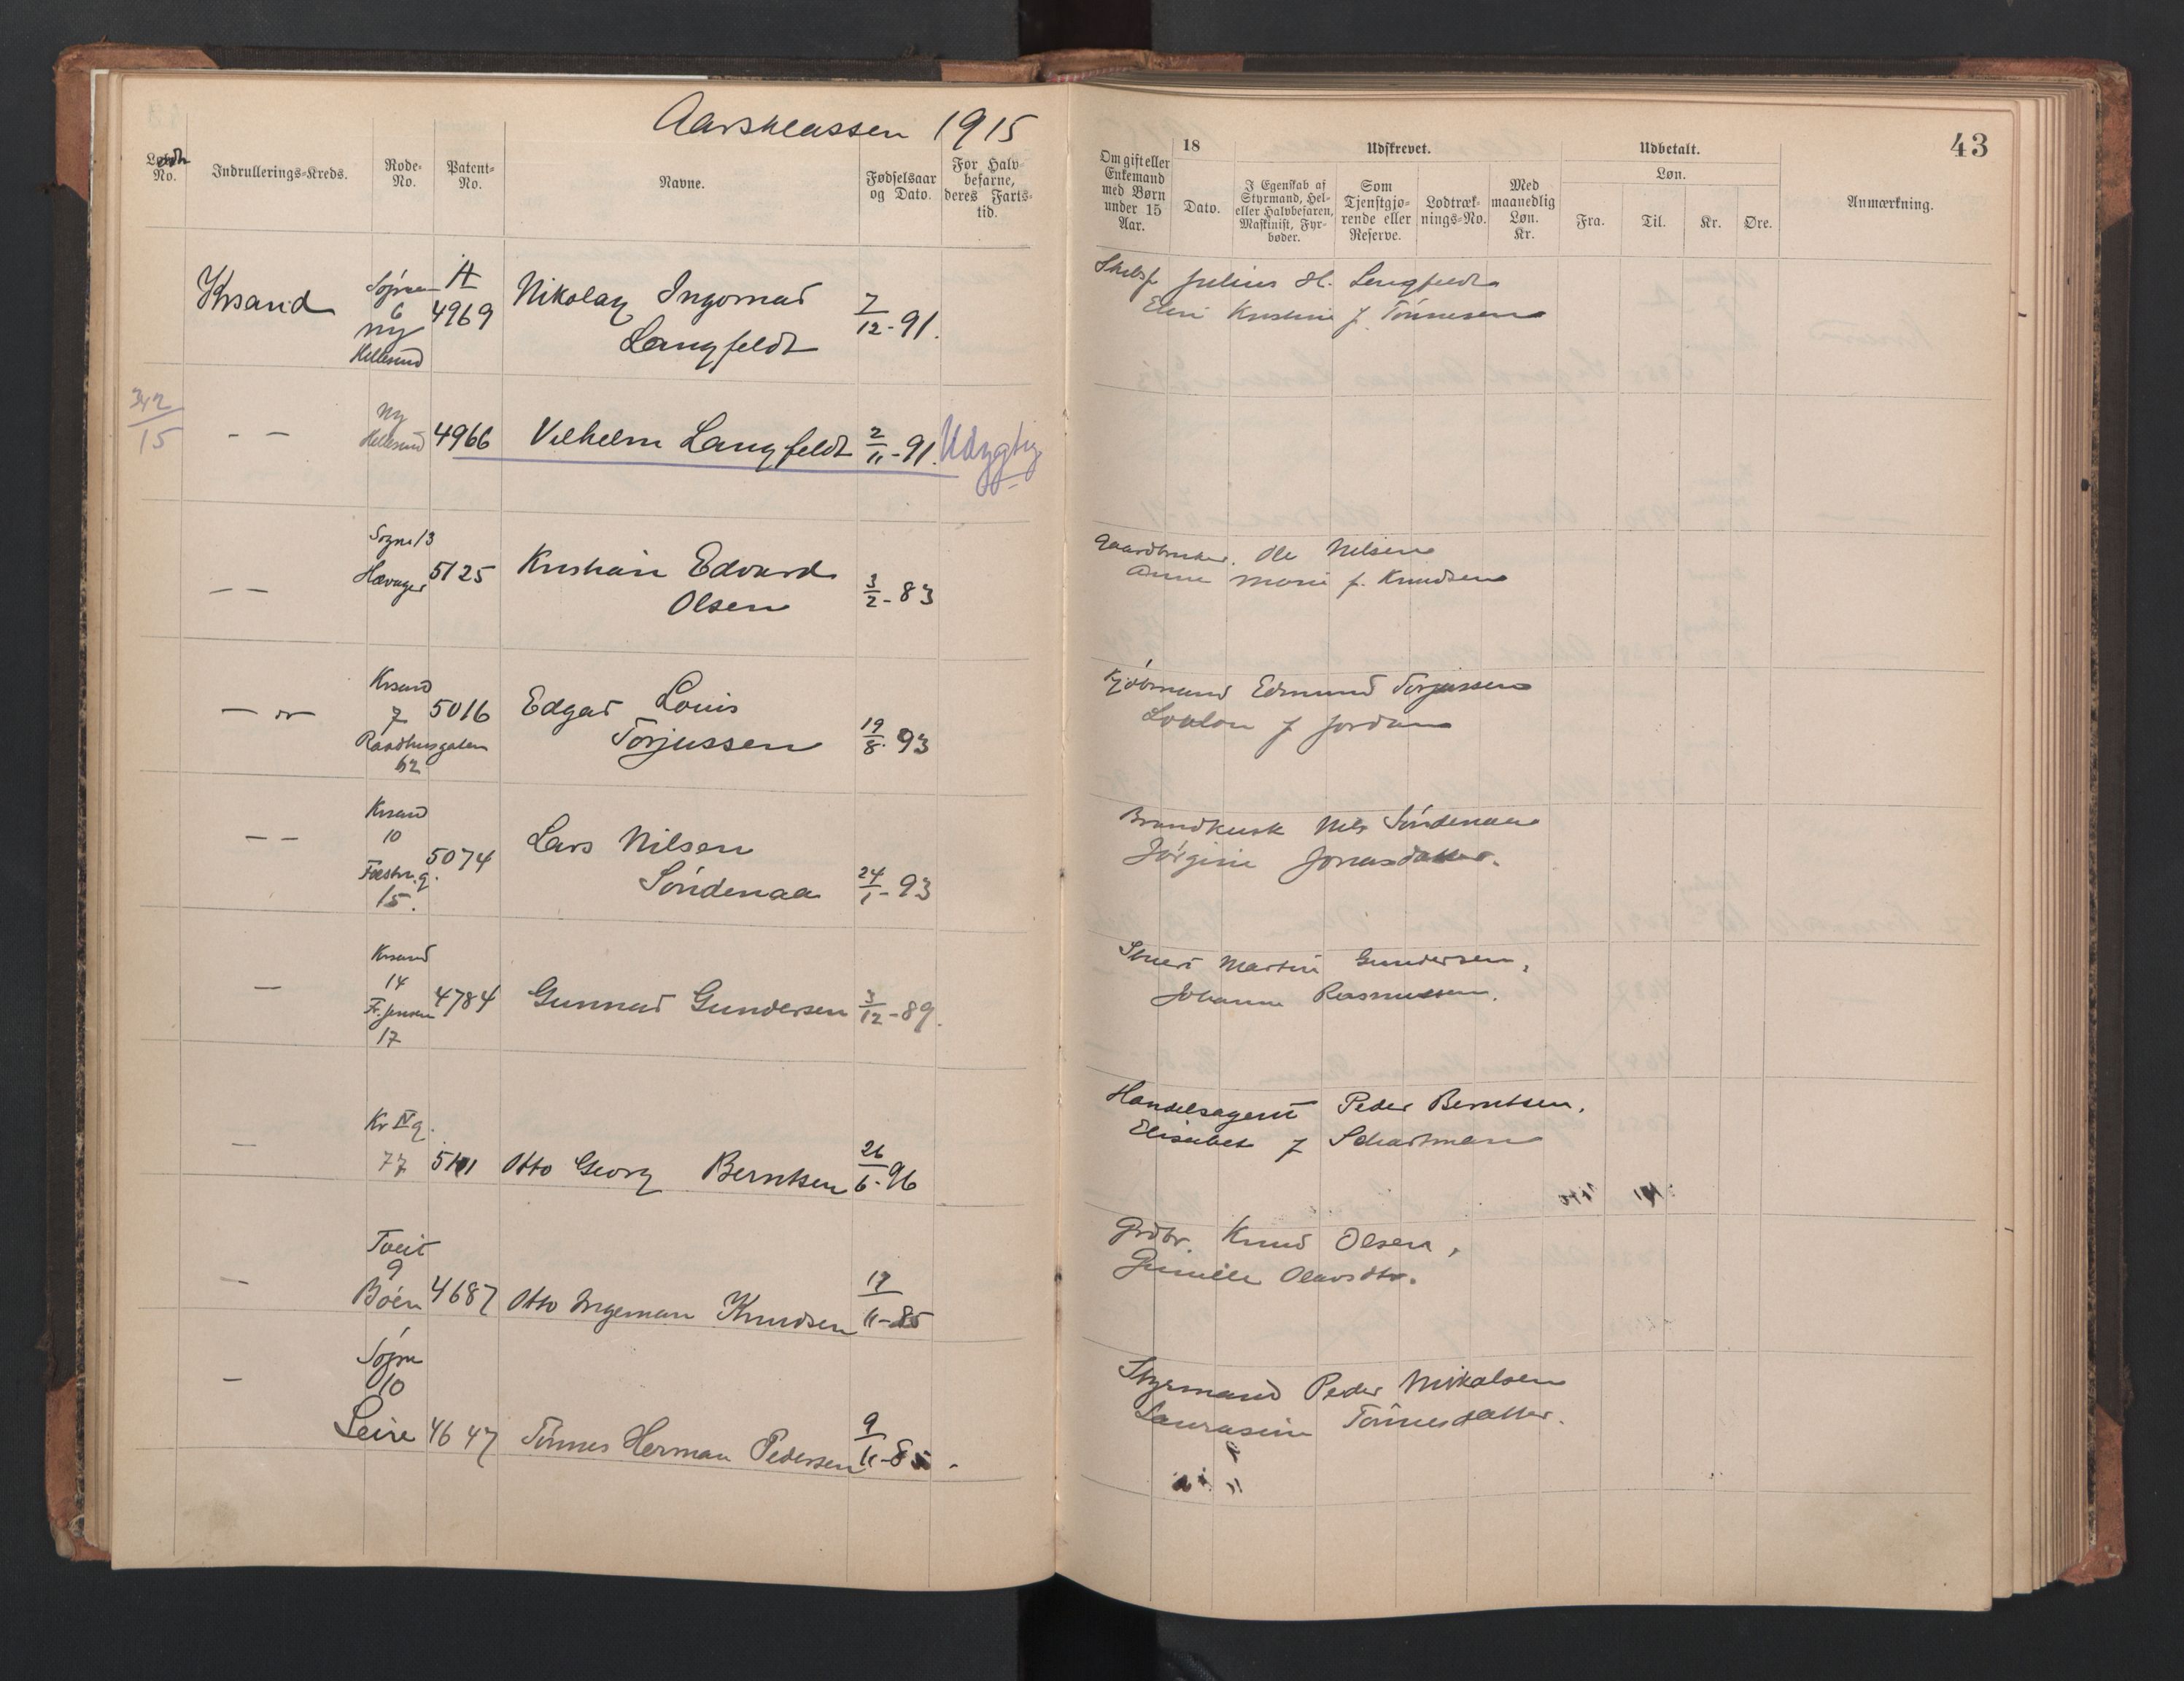 Aarsklassen 1915
43
No.
Indrullerings-Kreds.
Rode-No.
Patent-No.
Navne.
Fødselsaar og Dato.
For Halvbefarne, deres Fartstid.
Om gift eller Enkemand med Børn under 15 Aar.
18
Dato.
Udskrevet.
I Egenskab af Styrmand, Hel- eller Halvbefaren, Maskinist, Fyrbøder.
Som Tjenstgjørende eller Reserve.
Lodtræknings-No.
Med maanedlig Løn. Kr.
Udbetalt.
Løn.
Fra.
Til.
Kr.
Øre.
Anmærkning.
Krsand
Søgne
6
Ny
Hellesund
A
4969
Nikolay Ingomar
Langfeldt
7/12-91.
Skibsf. Julius H. Langfeldt
Elen Kristine f. Tönnesen
342/15
— —
Ny
Hellesund
4966 Vilhelm Langfeldt 2/11-91. Udygtig
— —
Sogne 13
Hævager
5125
Kristian Edvard
Olsen
3/2-83
Gaardbruker. Ole Nilsen
Anne Marie f. Knudsen
— " —
Krsand
7
Raadhusgaten
62
5016
Edgar Louis
Torjussen
19/8-93
Kjöbmand Edmund Torjussen
f Jordan
— —
Krsand
10
Festn.g.
15.
5074
Lars Nilsen
Söndenaa
24/1-93
Brandkusk Nils Söndenaa
Jörgine Jonasdatter.
—
Krsand
14
Fr. Jensen
17
4784 Gunnar Gundersen 3/12-89.
Stuert Martin Gundersen,
Johanne Rasmussen.
—
Kr IV g.
77
5111 Otto Georg Berntsen 26/6-96
Handelsagent Peder Berntsen,
Elisabet f Schartman
—
Tveit
9
Böen
4687 Otto Ingeman Knudsen 17/11-85
Grdbr. Knud Olsen,
Gunille Olavsdtr.
—
Søgne
10
Leire
4647 Tönnes Herman Pedersen 9/11-85.
Styrmand Peder Mikalsen
Laurasine Tönnesdatter.